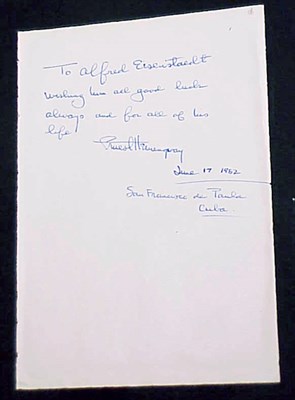 To Alfred Eisenstaedt
wishing him all good luck
always and for all of his
life
Ernest Hemingway
June 17 1952
San Francisco de Paula
Cuba